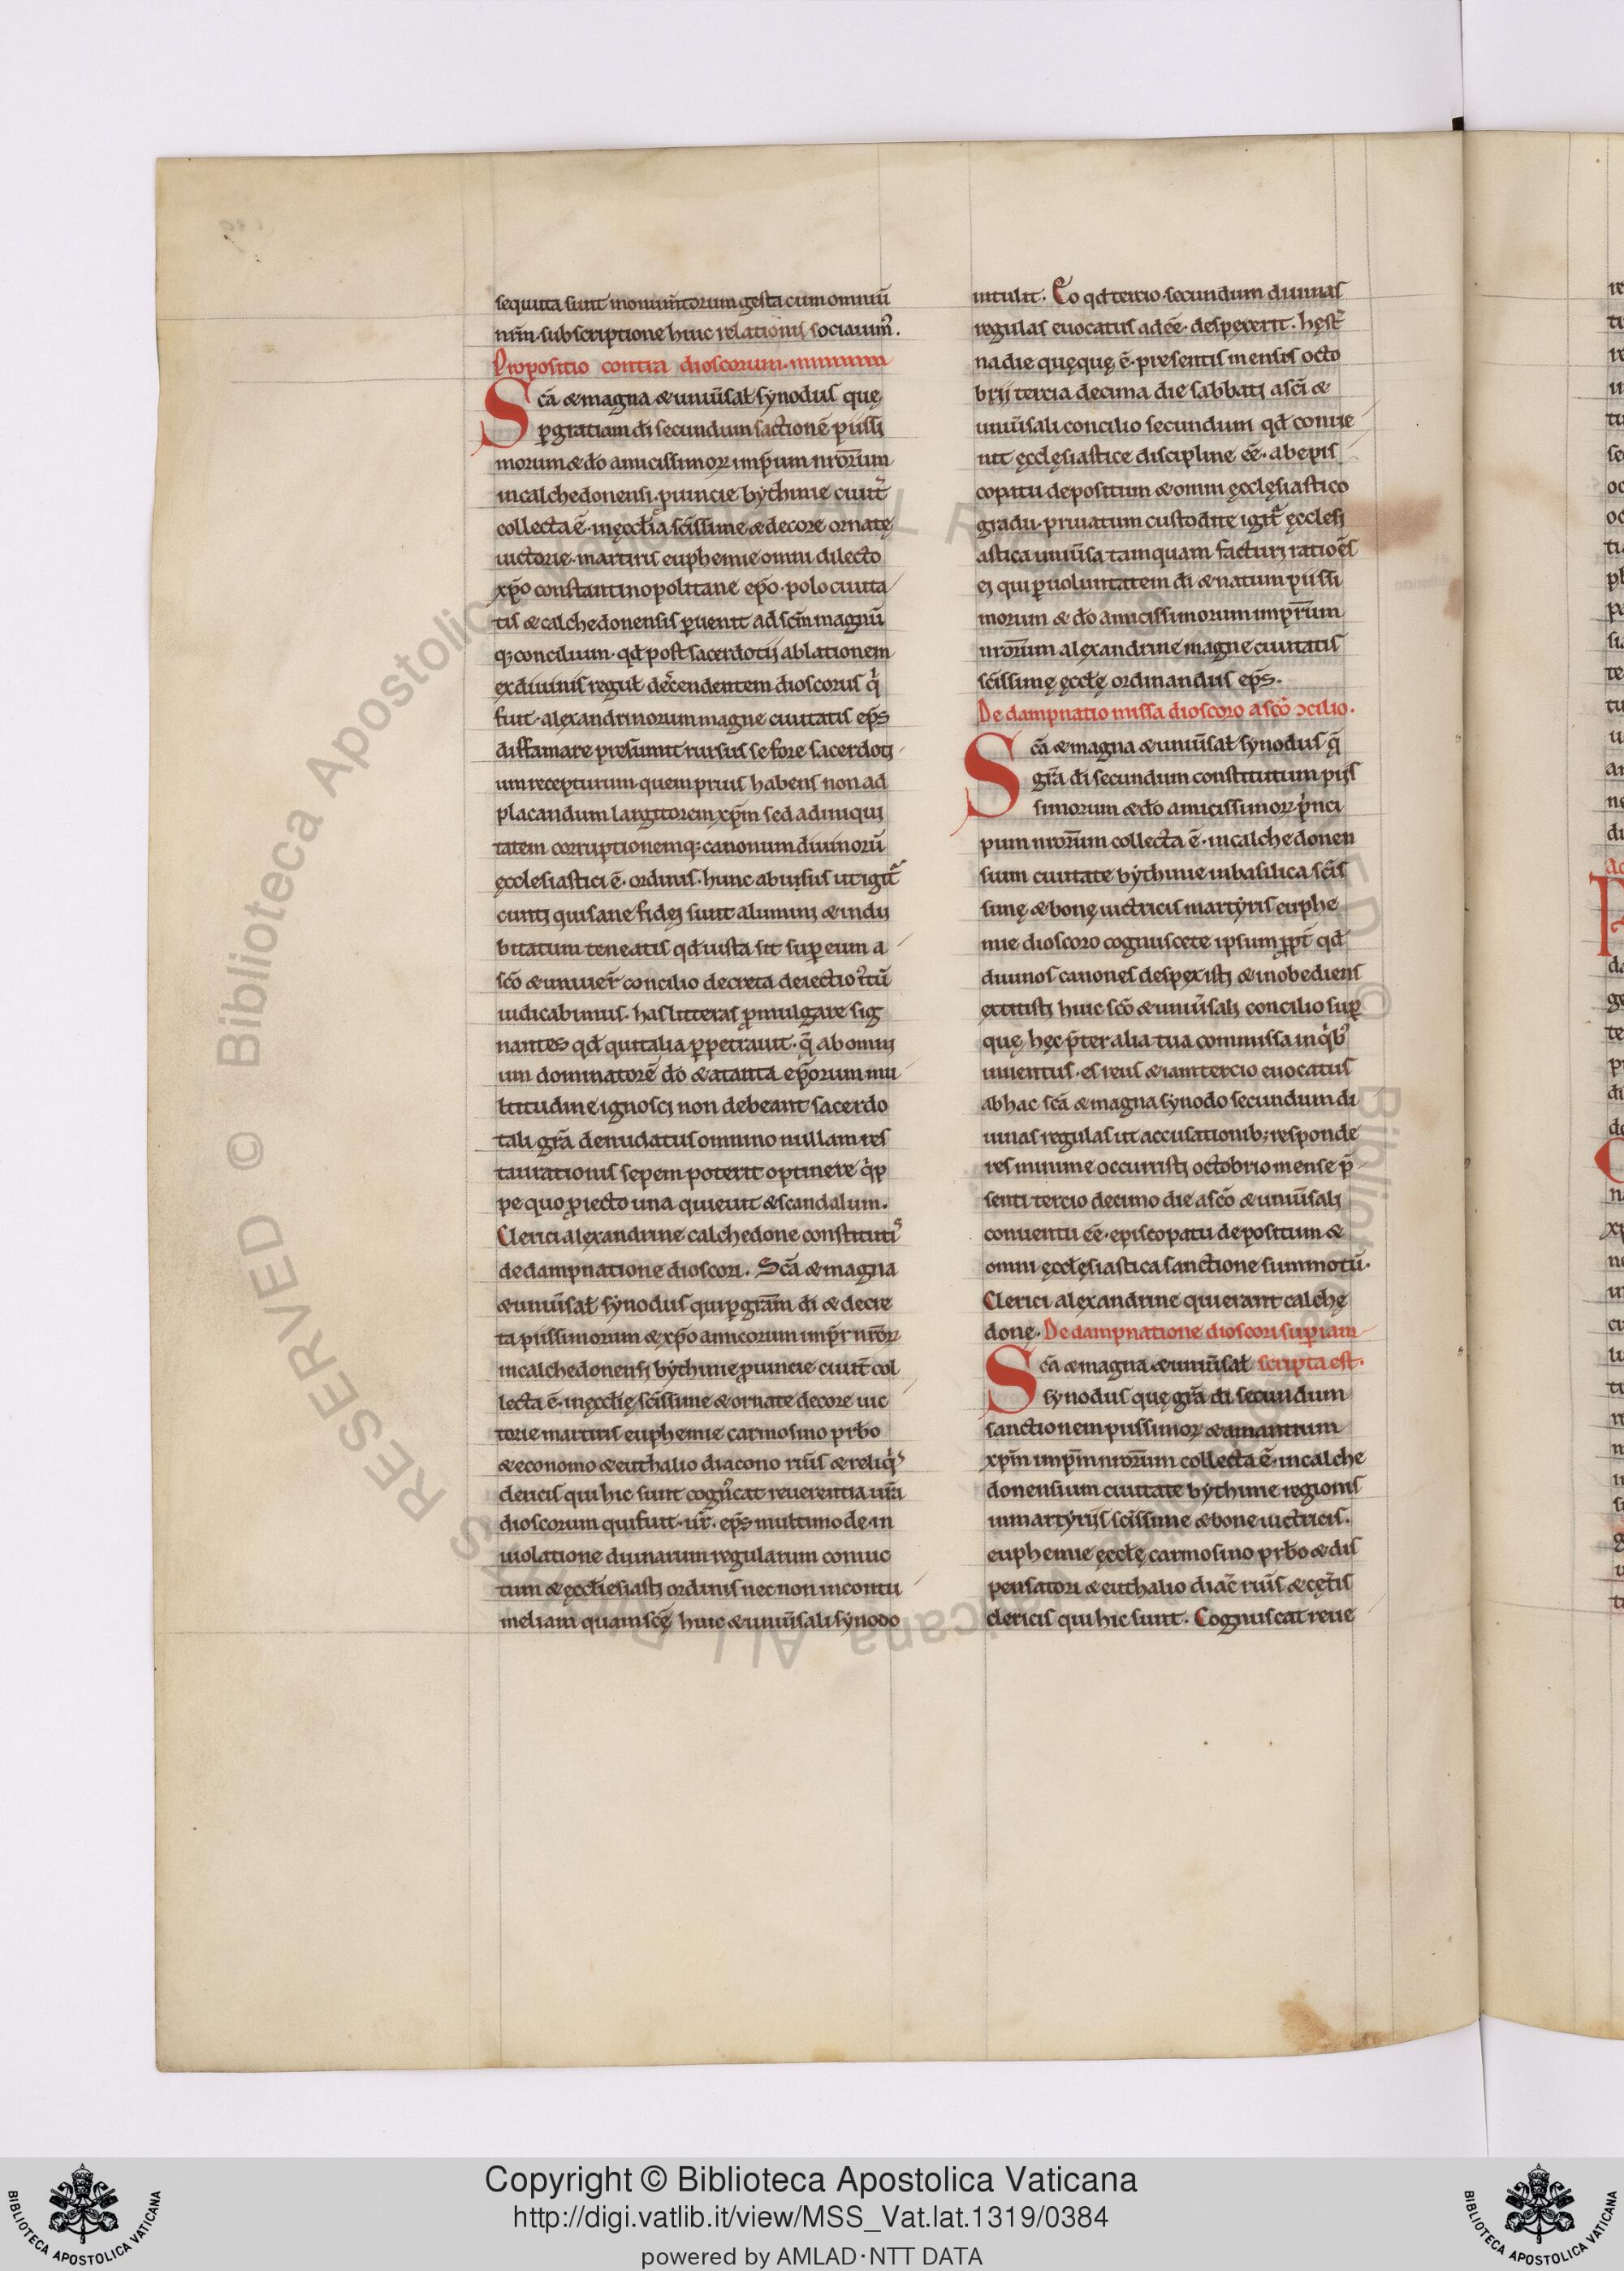 sequuta sunt monum̅torum gesta cum omniū
nr̄m subscriptione huic relationis sociauim᷒.
Propositio contra dioscorum.
Scā & magna & uniu̅sał synodus quę
ꝑ gratiam dī secundum sāctionē piissi
morum & dō amicissimoꝝ imp̄um nr̄orum
in calchedonensi puincie bythinie ciuit̄
collecta ē in ęcclīa scīssime & decore ornatę
uictorie martiris euphemie omni dilecto
xp̄o constantinopolitane ep̄o polo ciuita
tis & calchedonensis ꝑuenit ad scm̄ magnū
q; concilium qd̄ post sacerdotij ablationem
ex diuinis reguł dec̄endentem dioscorus q̄
fuit alexandrinorum magne ciuitatis ep̄s
diffamare presumit rursus se fore sacerdoti
um recepturum quem prius habens non ad
placandum largitorem xp̄m sed ad iniqui
tatem corruptionemq; canonum diuinorū
ęcclesiastici ē ordinis. hunc abuisus ut igit̄
cuncti qui sane fidei sunt alumini & indu
bitatum teneatis qd̄ iusta sit suꝑ eum a
scō & uniuer̄ concilio decreta deiectio r̄tū
iudicabimus. has litteras ꝓmulgare sig
nantes qd̄ qui talia ꝑpetrauit q̄ ab omni
um dominatorē dō & a tanta ep̄orum mu
ltitudine ignosci non debeant sacerdo
tali gr̄a denudatus omnino nullam res
taurationis sepem poterit optinere q̄p
pe quo ꝓiecto una quieuit & scandalum.
Clerici alexandrine calchedone constituti᷒
de dampnatione dioscori. Scā & magna
& uniu̅sał synodus qui ꝑ gr̄am dī & decre
ta piissimorum & xp̄o amicorum imp̄r nr̄oꝝ
in calchedonensi bythinie ꝓuincie ciuit̄ col
lecta ē in ęcclīe scīssime & ornate decore uic
torie martiris euphemie carmosino prb̄o
& economo & euthalio diacono rīus & reliq̄s
clericis qui hic sunt cogn̄cat reuerentia ur̄a
dioscorum qui fuit ur̄ ep̄s multimode in
uiolatione diuinarum regularum conuic
tum & ęcclesiasti ordinis nec non in contu
meliam quam scē huic & uniu̅sali synodo
intulit. Eo qd̄ tercio secundum diuinas
regulas euocatus adeē despexerit. hęst̄
na die quęquę ē presentis mensis octo
brij tercia decima die sabbati a scī &
uniu̅sali concilio secundum qd̄ conue
nit ęcclęsiastice discipline eē. ab epis
copatu depositum & omni ęcclęsiastico
gradu priuatum custodite igit̄ ęcclesi
astica uniu̅sa tamquam facturi ratioēs
ei qui ꝑ uoluntatem dī & natum piissi
morum & dō amicissimorum impr̄um
nr̄orum alexandrine magne ciuitatis
scīssimę ęccłę ordinandus ep̄s.
De dampnatio missa dioscoro a scō ɔcilio.
Scā & magna & uniu̅sał synodus q̄
gr̄a dī secundum constitutum pijs
simorum & dō amicissimoꝝ p̄nci
pum nr̄orum collecta ē in calchedonen
sium ciuitate bythinie in basilica scīs
simę & bonę uictricis martyris euphe
mie dioscoro cognuscete ipsum ꝓpt̄ qd̄
diuinos canones despexisti & inobediens
extitisti huic scō & uniu̅sali concilio suꝑ
quę hęc p̄ter alia tua commissa in q̄b᷒
inuentus es reus & iam tercio euocatus
ab hac scā & magna synodo secundum di
uinas regulas ut accusationib; responde
res minime occurristi octobrio mense p̄
senti tercio decimo die a scō & uniu̅sali
conuentu eē episcopatu depositum &
omni ęccłęsiastica sanctione summotū.
Clerici alexandrine qui erant calchę
donę. De dampnatione dioscori suꝑ iam
Scā & magna & uniu̅sał scripta est.
synodus quę gr̄a dī secundum
sanctionem piissimoꝝ & amantium
xp̄m imp̄m nr̄orum collecta ē in calche
donensium ciuitate bythinie regionis
in martyrijs scīssime & bone uictricis.
euphemie ęccłę carmosino prb̄o & dis
pensatori & euthalio diac̄ ruīs & cęt̄is
clericis qui hic sunt. Cognuscat reue
Copyright © Biblioteca Apostolica Vaticana
http://digi.vatlib.it/view/MSS_Vat.lat.1319/0384
powered by AMLAD·NTT DATA
BIBLIOTECA APOSTOLICA VATICANA
BIBLIOTECA APOSTOLICA VATICANA